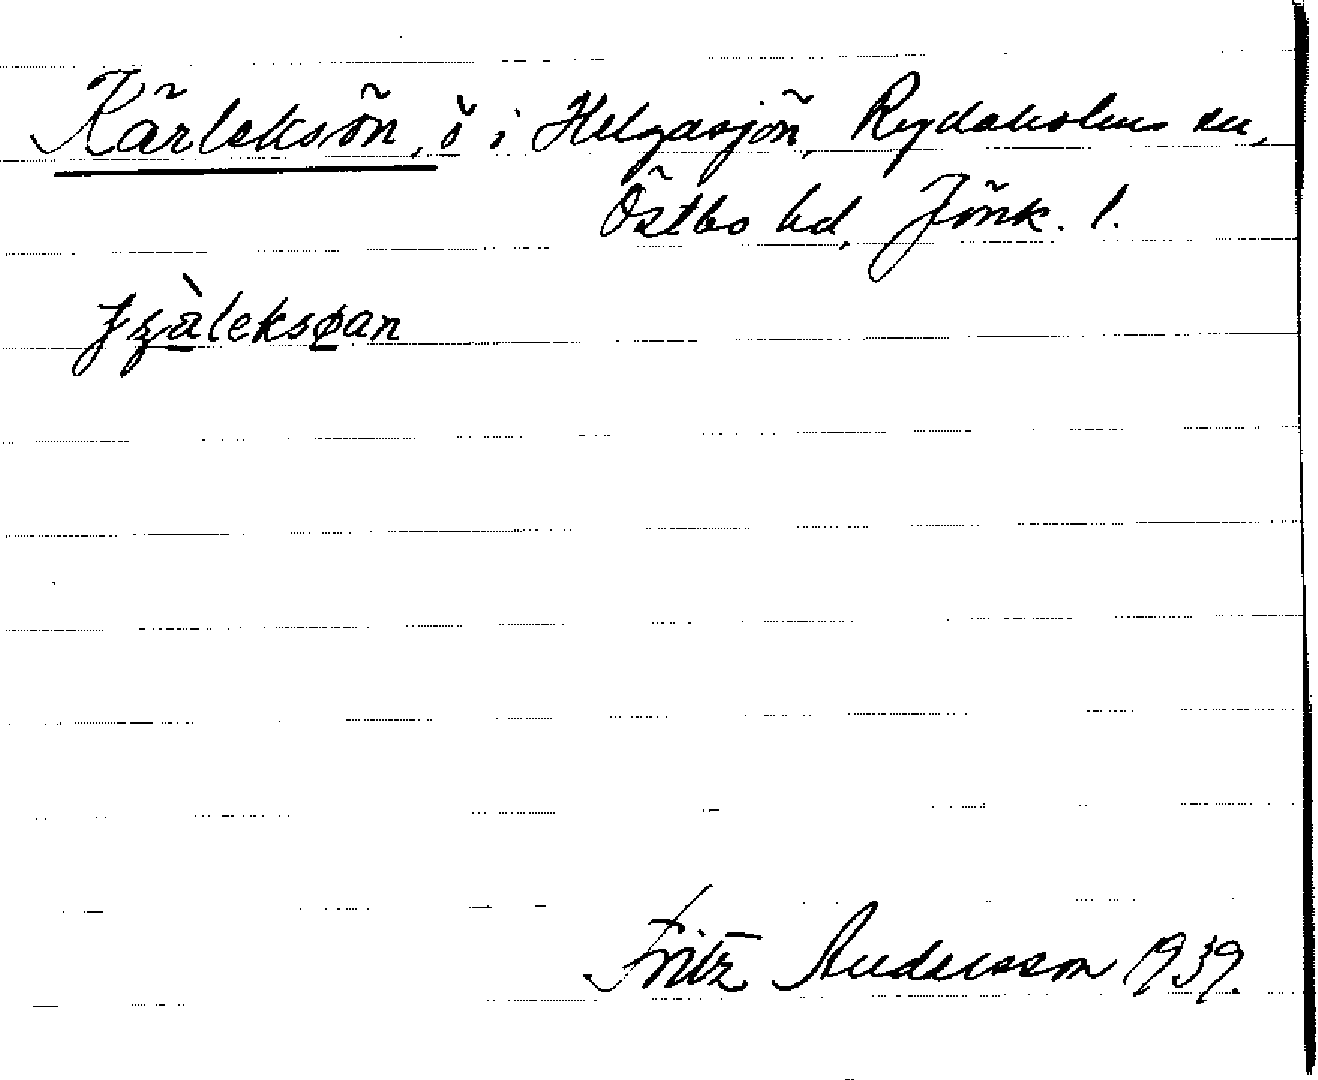 Kärleksön, ö i Helgasjön, Rydaholms sn,
Östbo hd, Jönk. l.
Fritz Andersson 1939.